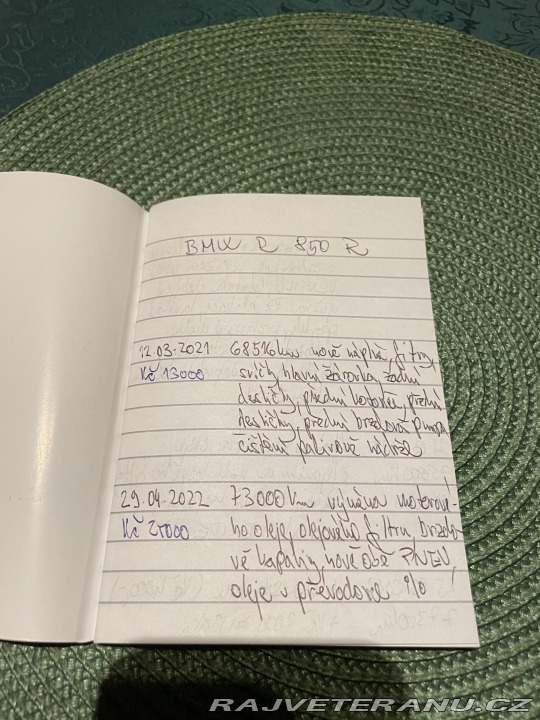 BMW R 850 R
12.03.2021 68516km nové náplně, filtry,
Kč 13000 svíčky, hlavní žárovka, zadní
destičky, přední kotouče, přední
destičky, přední brzdová pumpa
čištění palivové nádrže
29.04.2022 73000km výměna motorové-
Kč ho oleje, olejového filtru, brzdo-
vé kapaliny, nové obě PNEU,
oleje v převodovce
RAJVETERANU.CZ